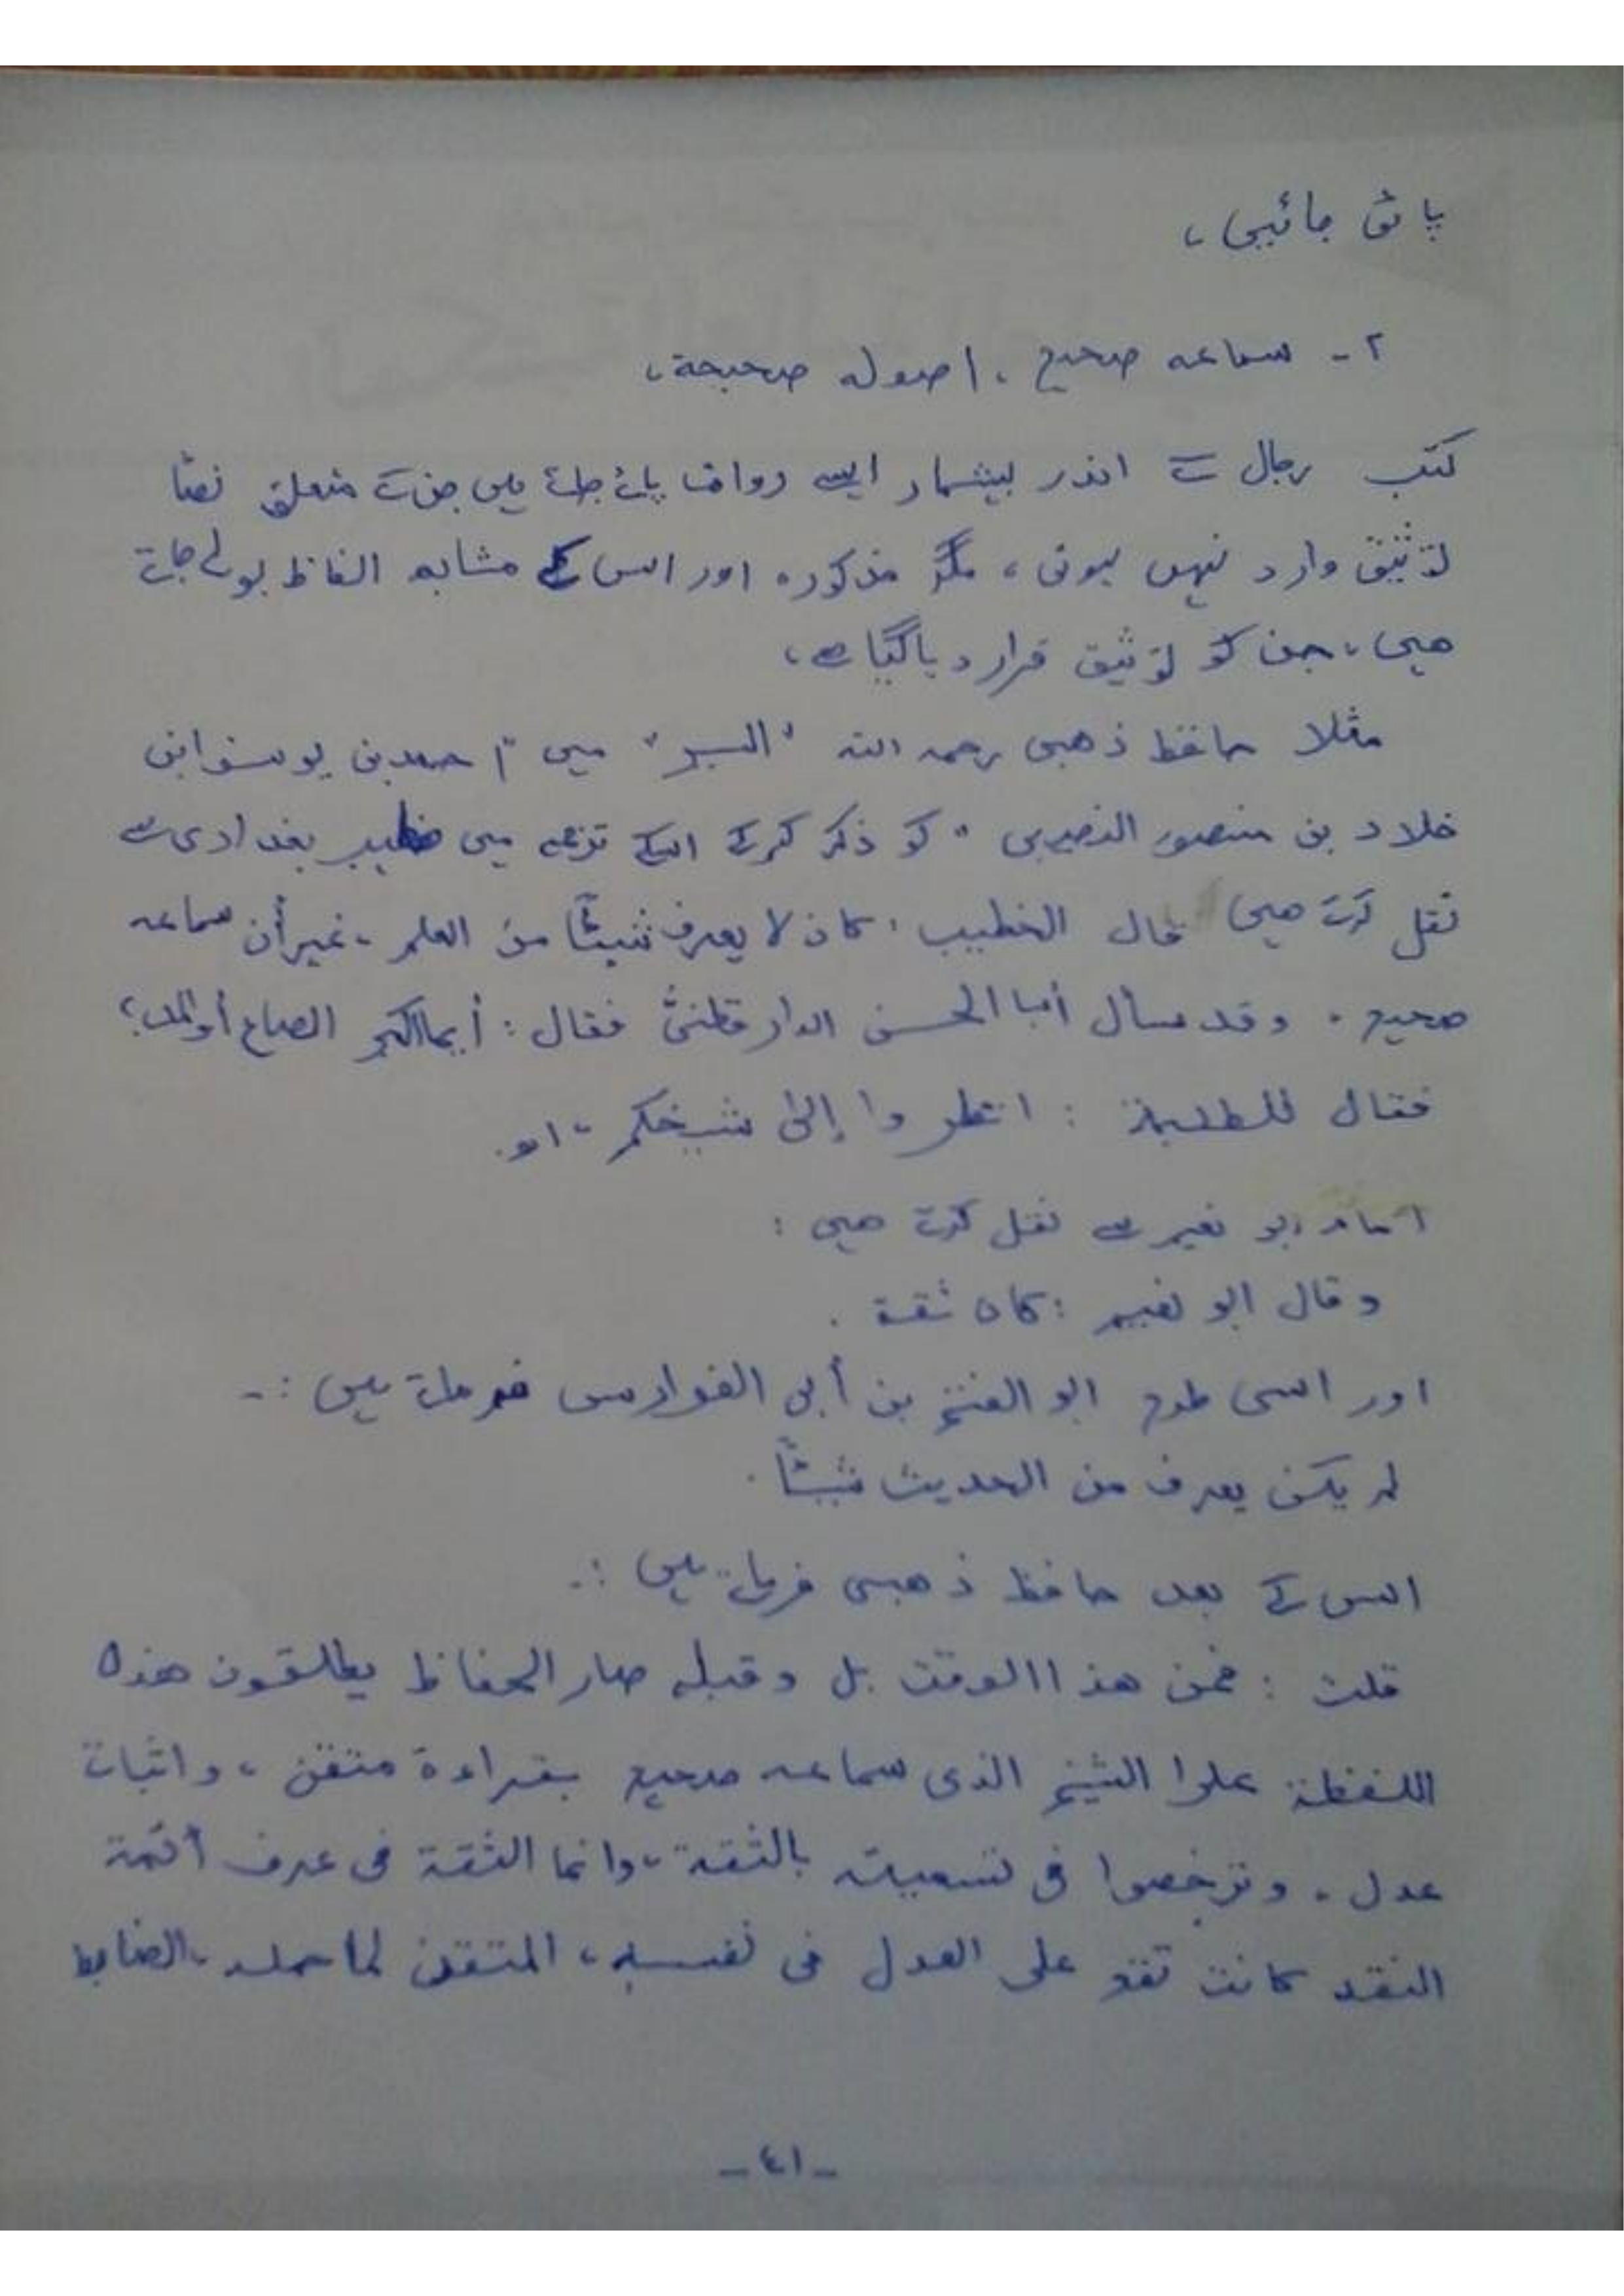 پائی جائیں،
٢- سماعه صحيح، اصوله صحيحة،
کتب رجال کے اندر بیشمار ایسے رواۃ پائے جاتے ہیں جن کے متعلق نصًا
توثیق وارد نہیں ہوتی، مگر مذکورہ اور اس کے مشابہ الفاظ بولے جاتے
ھیں، جن کو توثیق قرار دیا گیا ہے،
مثلا حافظ ذھبی رحمہ اللہ "السیر" میں "احمد بن یوسف ابن
خلاد بن منصور النصیبی" کو ذکر کرکے اسکے ترجمہ میں خطیب بغدادی سے
نقل کرتے ھیں قال الخطيب: كان لا يعرف شيئًا من العلم، غير أن سماعه
صحيح. وقد سأل أبا الحسن الدارقطنيّ فقال: أيما أكبر الصاع أو المد؟
فقال للطلبة: انظروا إلى شيخكم، اهـ.
امام ابو نعیم سے نقل کرتے ھیں:
وقال ابو نعيم: كان ثقة.
اور اسی طرح ابو الفتح بن أبي الفوارس فرماتے ہیں:-
لم يكن يعرف من الحديث شيئًا.
اس کے بعد حافظ ذھبی فرماتے ہیں:-
قلت: فمن هذا الوقت بل وقبله صار الحفاظ يطلقون هذه
اللفظة على الشيخ الذى سماعه صحيح بقراءة متقن، واثبات
عدل. وترخصوا فى تسميته بالثقة، وانما الثقة فى عرف أئمة
النقد كانت تقع على العدل فى نفسه، المتقن لما حمله، الضابط
-٤١-